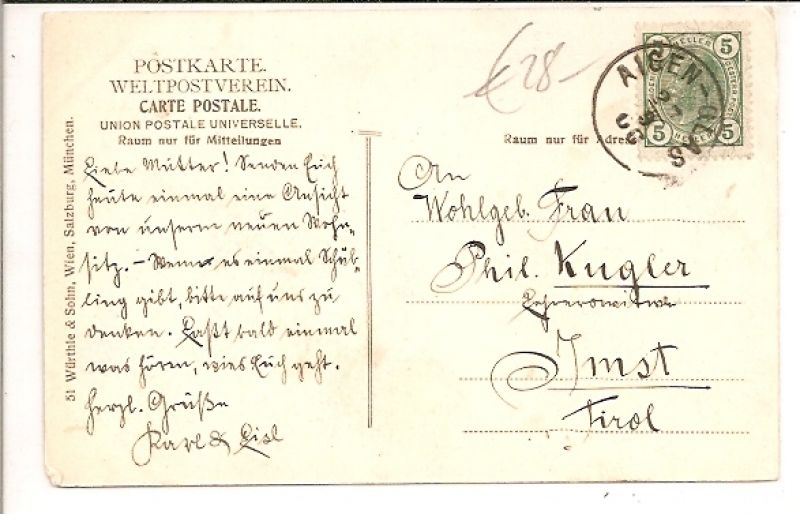 POSTKARTE.
WELTPOSTVEREIN.
CARTE POSTALE.
UNION POSTALE UNIVERSELLE.
Raum nur für Mitteilungen
Liebe Mutter! Senden Euch
heute einmal eine Ansicht
von unserem neuen Wohn-
sitz. – Wenn es einmal Schüb-
ling gibt, bitte auf uns zu
denken. Laßt bald einmal
was hören, wies Euch geht.
Herzl. Grüße
Karl & Lisl
51 Würthle & Sohn, Wien, Salzburg, München.
€ 28-
5 HELLER 5
5 HELLER 5
AIGEN-GLAS
Raum nur für Adresse
An
Wohlgeb. Frau
Phil. Kugler
Lehrerswitwe
Imst
Tirol